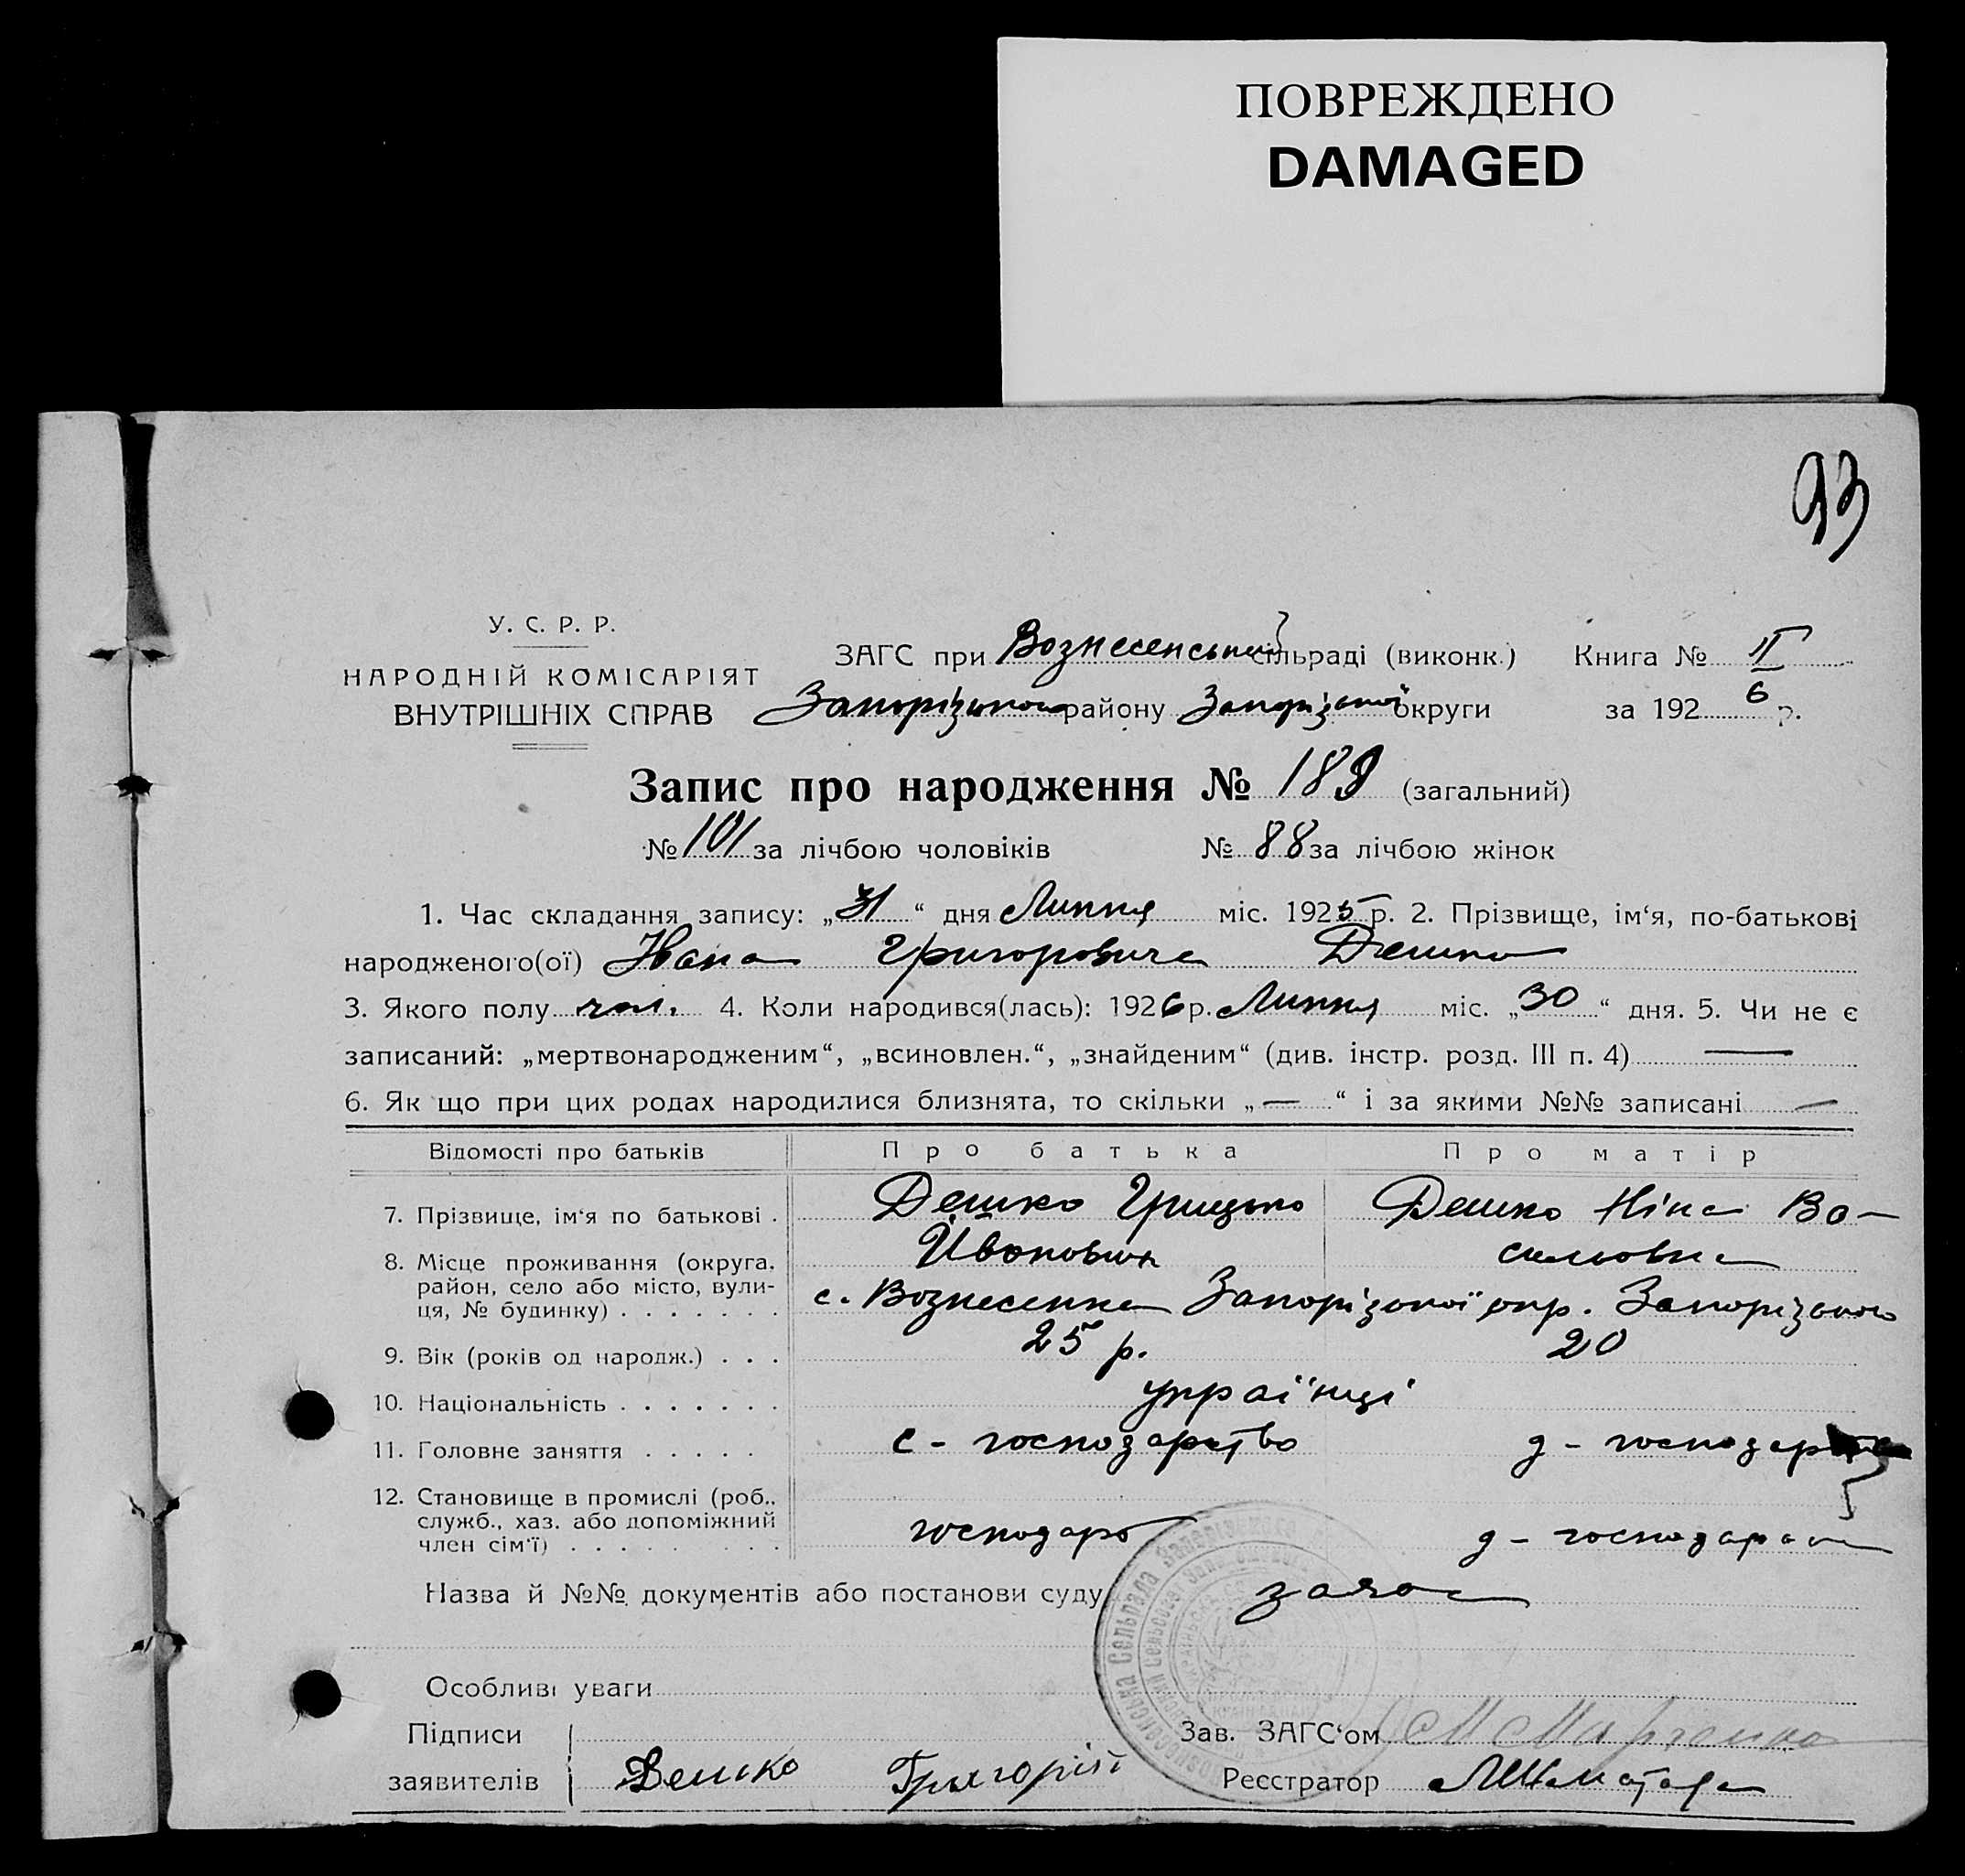 ПОВРЕЖДЕНО
DAMAGED
93
У. С. Р. Р.
НАРОДНІЙ КОМІСАРІЯТ
ВНУТРІШНІХ СПРАВ
ЗАГС при Вознесенській сільраді (виконк.) Книга № II
Запорізького району Запорізької округи за 1926 р.
Запис про народження № 189 (загальний)
№ 101 за лічбою чоловіків № 88 за лічбою жінок
1. Час складання запису: „31“ дня Липня міс. 1925 р. 2. Прізвище, ім‘я, по-батькові
народженого(ої) Івана Григоровича Дешко
3. Якого полу чол. 4. Коли народився(лась): 1926 р. Липня міс. „30“ дня. 5. Чи не є
записаний: „мертвонародженим“, „всиновлен.“, „знайденим“ (див. інстр. розд. III п. 4) —
6. Як що при цих родах народилися близнята, то скільки „—“ і за якими №№ записані —
Відомості про батьків Про батька Про матір
7. Прізвище, ім‘я по батькові . Дешко Грицько Йванович Дешко Ніна Ва-
сильовна
8. Місце проживання (округа, район, село або місто, вули-
ця, № будинку) . . . . . . . с. Вознесенка Запорізької окр. Запорізького
9. Вік (років од народж.) . . . 25 р. 20
10. Національність . . . . . . . українці
11. Головне заняття . . . . . с - господарство д - господар
12. Становище в промислі (роб.,
служб., хаз. або допоміжний
член сім‘ї) . . . . . . . . господарь д - господарка
Назва й №№ документів або постанови суду
Особливі уваги
Підписи
заявителів Дешко Григорій
Зав. ЗАГС‘ом
Реєстратор